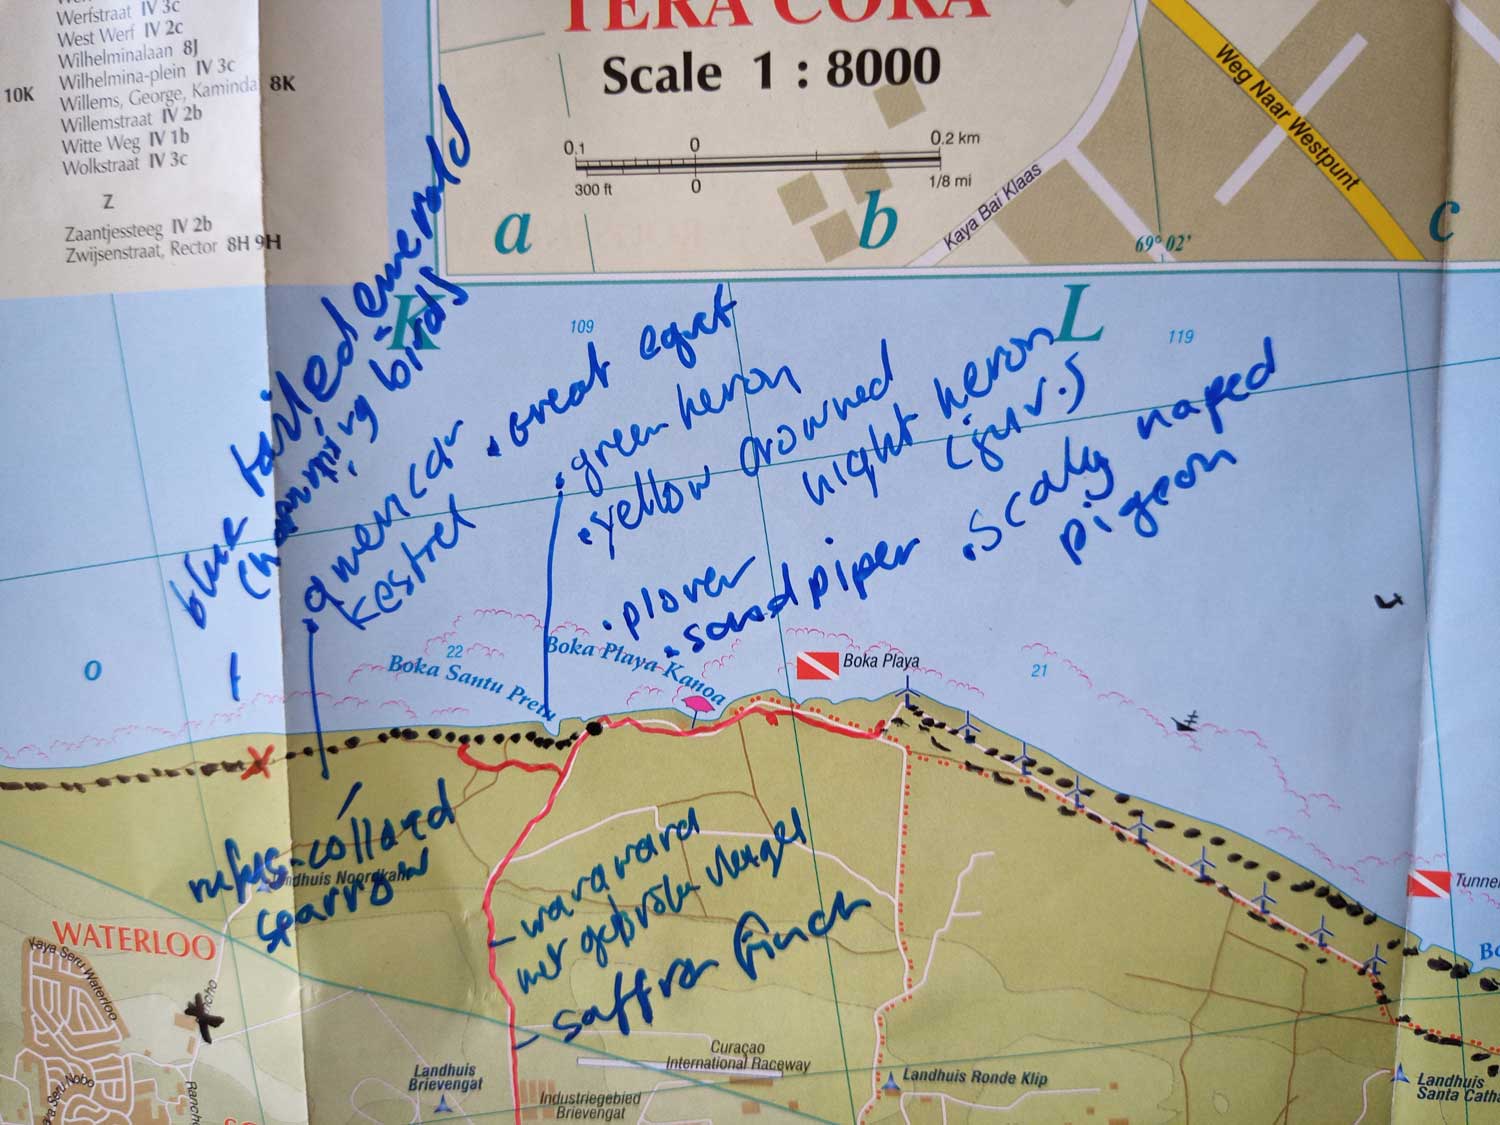 Werfstraat IV 3c
West Werf IV 2c
Wilhelminalaan 8J
Wilhelmina-plein IV 3c
10K Willems, George, Kaminda 8K
Willemstraat IV 2b
Witte Weg IV 1b
Wolkstraat IV 3c
Z
Zaantjessteeg IV 2b
Zwijsenstraat, Rector 8H 9H
TERA CORA
Scale 1 : 8000
0.1 0 0.2 km
300 ft 0 1/8 mi
a b c
Kaya Bai Klaas
Weg Naar Westpunt
69° 02'
K L
109
119
blue tailed emerald
birds
american
kestrel
great egret
green heron
yellow crowned
night heron
(juv.)
plover
sandpiper
scaly naped
pigeon
O
22
21
Boka Santu Pretu
Boka Playa Kanoa
Boka Playa
Tunnel
rufus-collared
sparrow
Landhuis Noordkant
WATERLOO
Kaya Seru Waterloo
Seru Nobo
warawara
met gebroken vleugel
saffron finch
Curaçao
International Raceway
Landhuis
Brievengat
Industriegebied
Brievengat
Landhuis Ronde Klip
Landhuis
Santa Cath